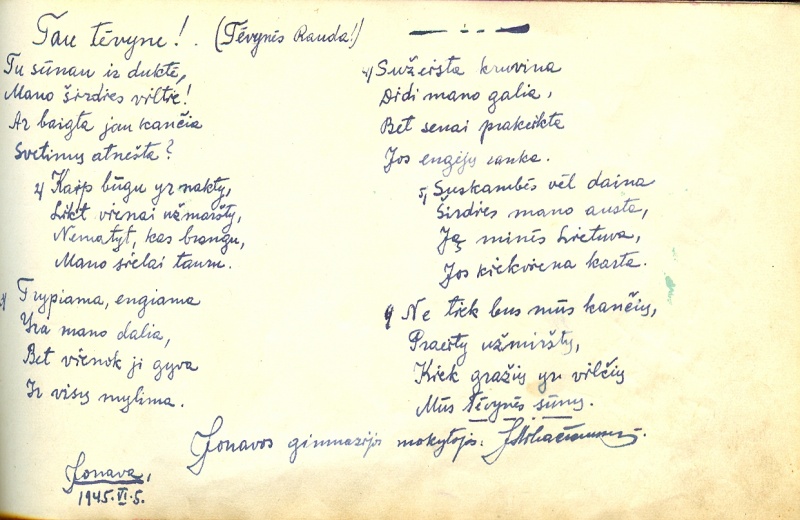 Tau tėvyne! (Tėvynės Rauda!)
Tu sūnau ir duktė,
Mano širdies viltie!
Ar baigta jau kančia
Svetimų atnešta?
2) Kaip būgu yr nakty,
Likt vienai užmaršty,
Nematyt, kas brangu,
Mano sielai tauru.
3) Trypiama, engiama
Yra mano dalia,
Bet vienok ji gyva
Ir visų mylima.
4) Sužeista kruvina
Didi mano galia,
Bet senai prakeikta
Jos engėjų ranka.
5) Suskambės vėl daina
Širdies mano austa,
Ją minės Lietuva,
Jos kiekviena karta.
Ne tiek bus mūs kančių,
Praeity užmiršty,
Kiek gražių yr vilčių
Mūs tėvynės sūnų.
Jonavos gimnazijos mokytojas:
Jonava,
1945.VI.5.